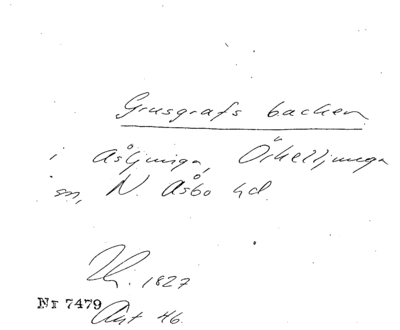 Grusgrafs backen
i Åsljunga, Örkelljunga
sn, N. Åsbo hd.
1827
Nr 7479
Akt 46.